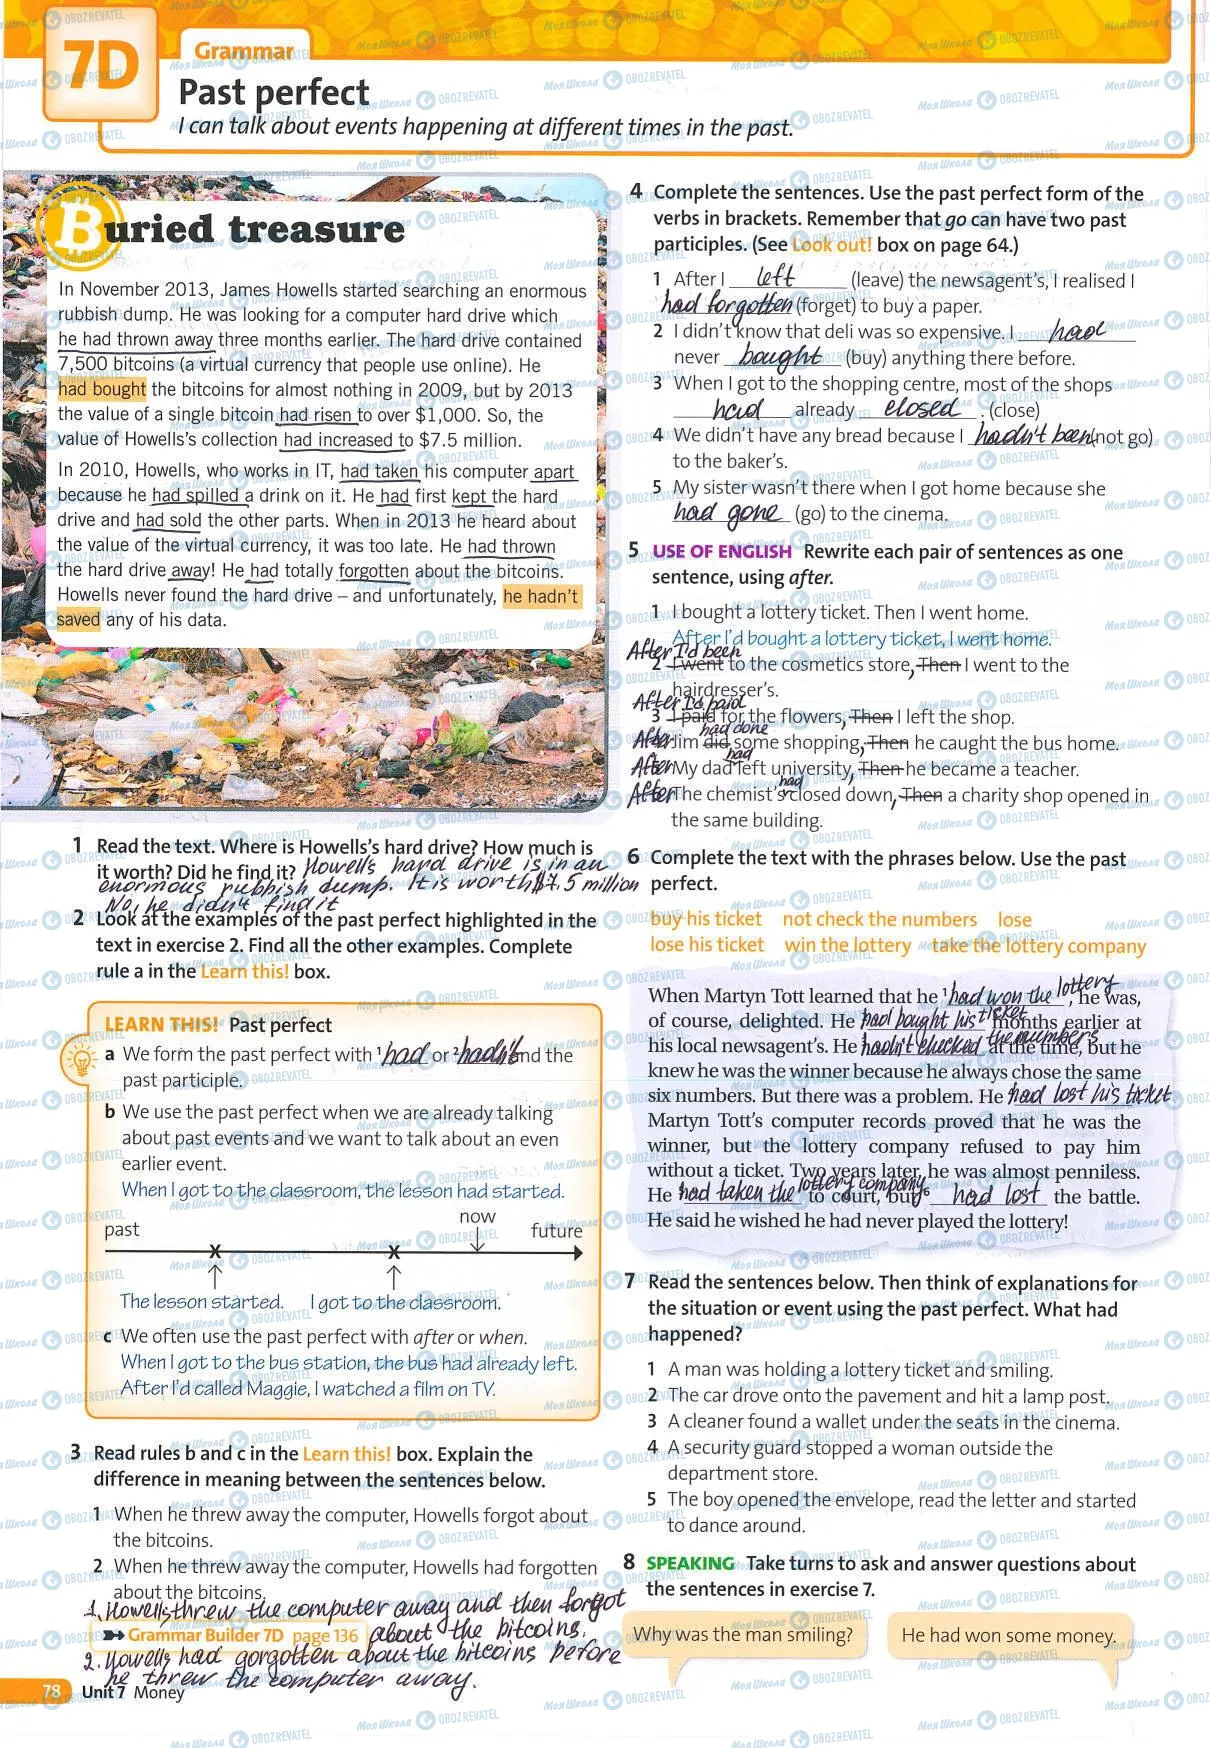 7D
Grammar
Past perfect
I can talk about events happening at different times in the past.
Buried treasure
In November 2013, James Howells started searching an enormous
rubbish dump. He was looking for a computer hard drive which
he had thrown away three months earlier. The hard drive contained
7,500 bitcoins (a virtual currency that people use online). He
had bought the bitcoins for almost nothing in 2009, but by 2013
the value of a single bitcoin had risen to over $1,000. So, the
value of Howells's collection had increased to $7.5 million.
In 2010, Howells, who works in IT, had taken his computer apart
because he had spilled a drink on it. He had first kept the hard
drive and had sold the other parts. When in 2013 he heard about
the value of the virtual currency, it was too late. He had thrown
the hard drive away! He had totally forgotten about the bitcoins.
Howells never found the hard drive – and unfortunately, he hadn't
saved any of his data.
1 Read the text. Where is Howells's hard drive? How much is
it worth? Did he find it? Howell's hard drive is in an
enormous rubbish dump. It is worth $7.5 million
No, he didn't find it
2 Look at the examples of the past perfect highlighted in the
text in exercise 2. Find all the other examples. Complete
rule a in the Learn this! box.
LEARN THIS! Past perfect
a We form the past perfect with 1 had or 2 hadn't and the
past participle.
b We use the past perfect when we are already talking
about past events and we want to talk about an even
earlier event.
When I got to the classroom, the lesson had started.
now
past future
X X
The lesson started. I got to the classroom.
c We often use the past perfect with after or when.
When I got to the bus station, the bus had already left.
After I'd called Maggie, I watched a film on TV.
3 Read rules b and c in the Learn this! box. Explain the
difference in meaning between the sentences below.
1 When he threw away the computer, Howells forgot about
the bitcoins.
2 When he threw away the computer, Howells had forgotten
about the bitcoins.
1. Howells threw the computer away and then forgot
Grammar Builder 7D page 136 about the bitcoins.
2. Howells had gorgotten about the bitcoins before
he threw the computer away.
78 Unit 7 Money
4 Complete the sentences. Use the past perfect form of the
verbs in brackets. Remember that go can have two past
participles. (See Look out! box on page 64.)
1 After I left (leave) the newsagent's, I realised I
had forgotten (forget) to buy a paper.
2 I didn't know that deli was so expensive. I had
never bought (buy) anything there before.
3 When I got to the shopping centre, most of the shops
had already closed . (close)
4 We didn't have any bread because I hadn't been (not go)
to the baker's.
5 My sister wasn't there when I got home because she
had gone (go) to the cinema.
5 USE OF ENGLISH Rewrite each pair of sentences as one
sentence, using after.
1 I bought a lottery ticket. Then I went home.
After I'd bought a lottery ticket, I went home.
After I'd been
2 I went to the cosmetics store, Then I went to the
hairdresser's.
After I'd paid
3 I paid for the flowers, Then I left the shop.
had done
After Jim did some shopping, Then he caught the bus home.
had
After My dad left university, Then he became a teacher.
had
After The chemist's closed down, Then a charity shop opened in
the same building.
6 Complete the text with the phrases below. Use the past
perfect.
buy his ticket not check the numbers lose
lose his ticket win the lottery take the lottery company
When Martyn Tott learned that he 1 had won the lottery, he was,
of course, delighted. He had bought his ticket months earlier at
his local newsagent's. He hadn't checked the numbers at the time, but he
knew he was the winner because he always chose the same
six numbers. But there was a problem. He had lost his ticket
Martyn Tott's computer records proved that he was the
winner, but the lottery company refused to pay him
without a ticket. Two years later, he was almost penniless.
He had taken the lottery company to court, but 6 had lost the battle.
He said he wished he had never played the lottery!
7 Read the sentences below. Then think of explanations for
the situation or event using the past perfect. What had
happened?
1 A man was holding a lottery ticket and smiling.
2 The car drove onto the pavement and hit a lamp post.
3 A cleaner found a wallet under the seats in the cinema.
4 A security guard stopped a woman outside the
department store.
5 The boy opened the envelope, read the letter and started
to dance around.
8 SPEAKING Take turns to ask and answer questions about
the sentences in exercise 7.
Why was the man smiling? He had won some money.
МояШкола OBOZREVATEL